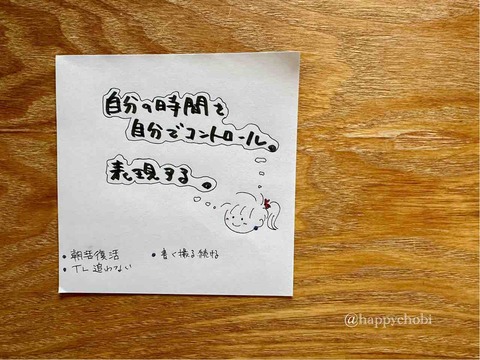 自分の時間を
自分でコントロール。
表現する。
・朝活復活
・TL追わない
・書く撮る続ける
@happychobi